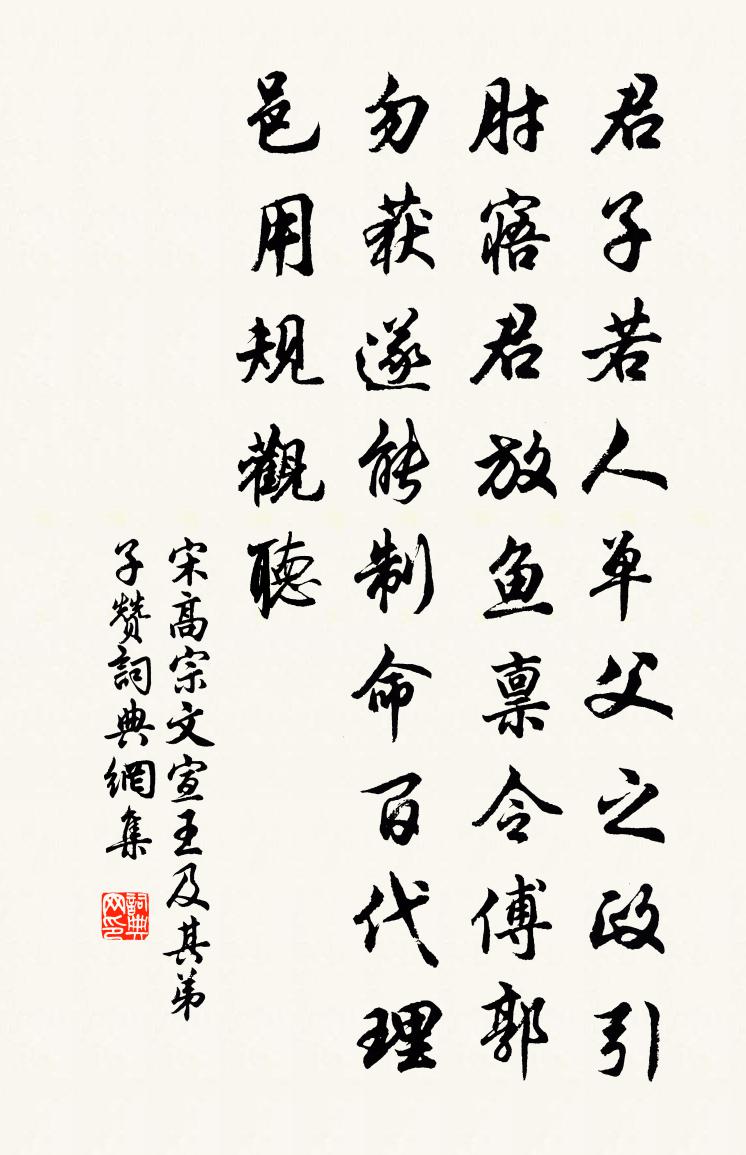 君子若人單父之政引
肘寤君放魚禀令傅郭
勿获遂能制命百代理
邑用規觀聽
宋高宗文宣王及其弟
子贊詞典網集
詞典网印